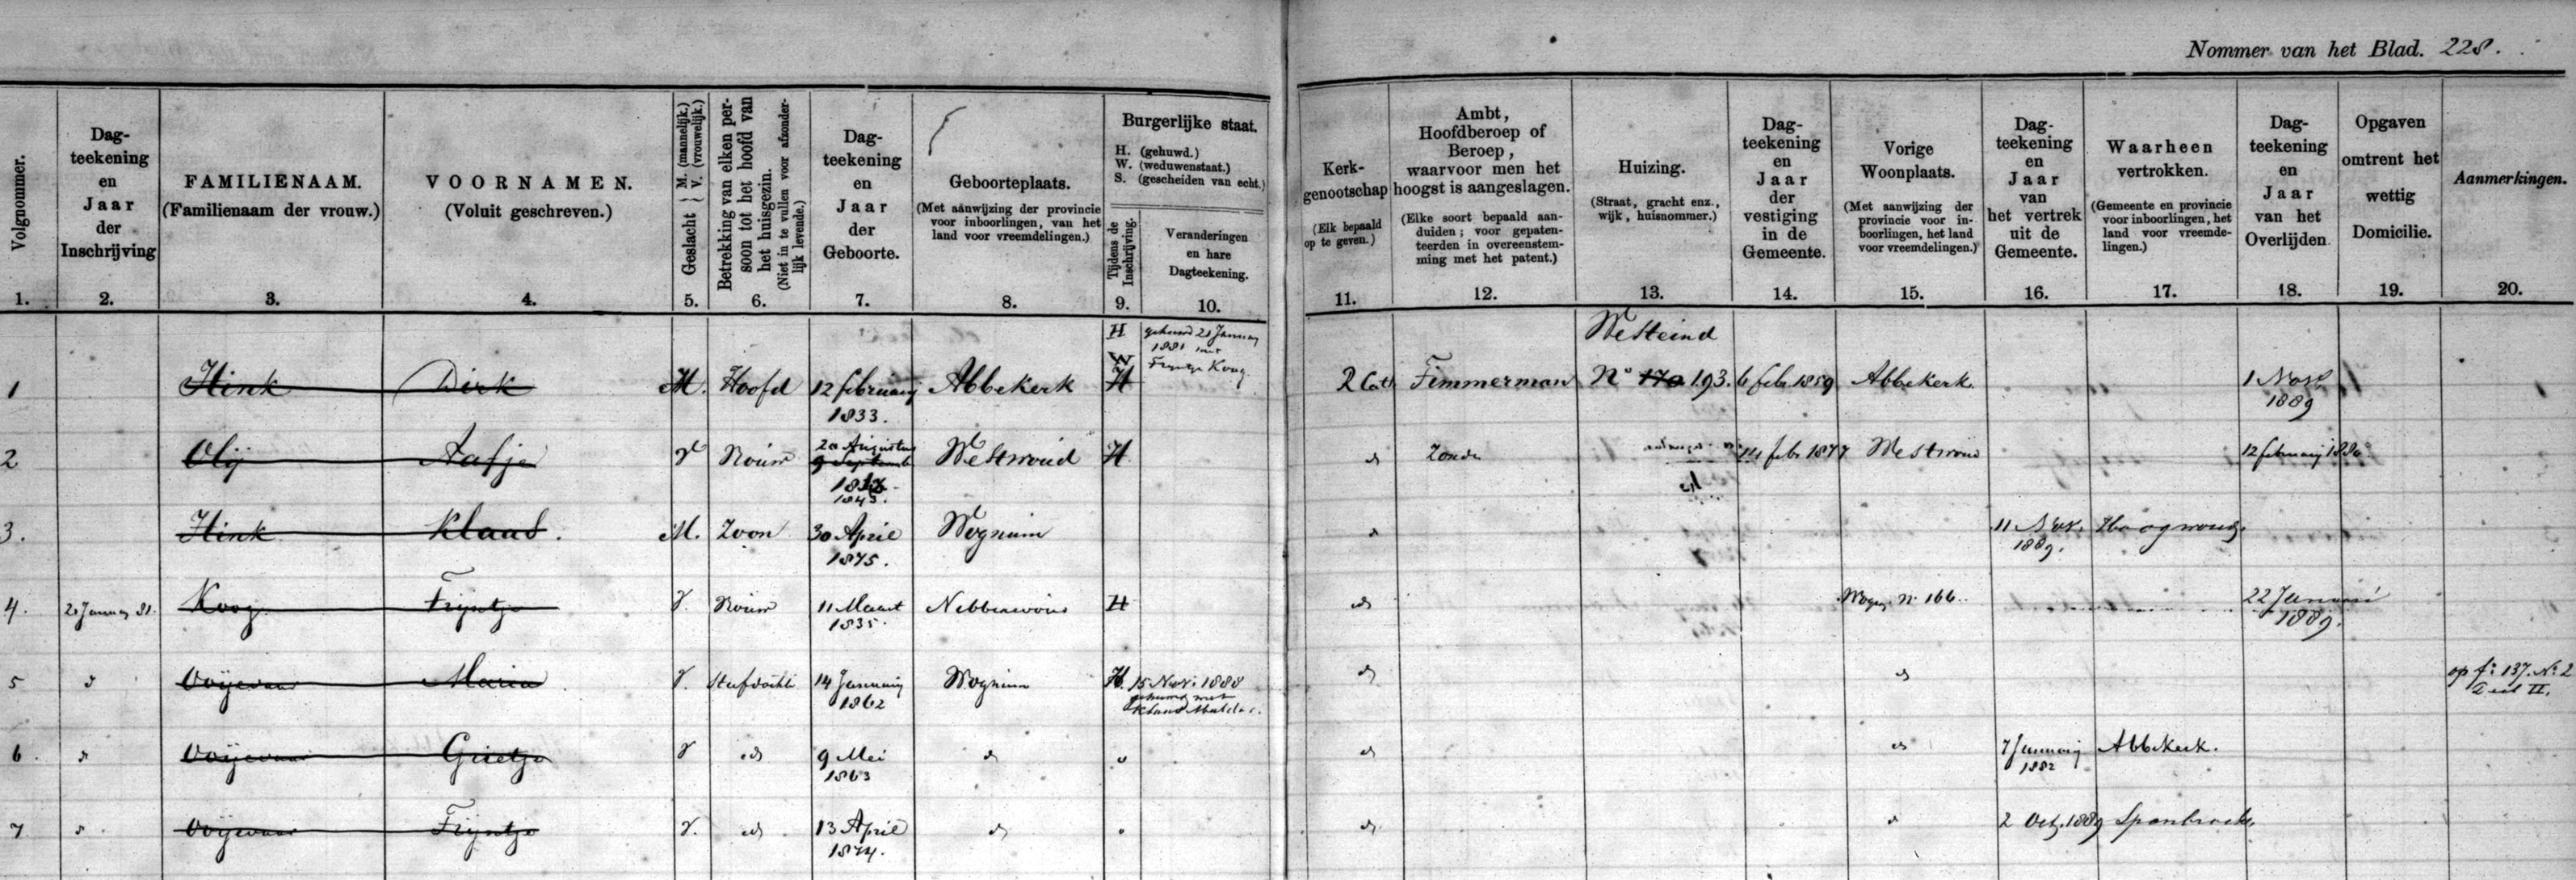 Nommer van het Blad. 228.
Volgnummer.
Dag-
teekening
en
Jaar
der
Inschrijving
FAMILIENAAM.
(Familienaam der vrouw.)
VOORNAMEN.
(Voluit geschreven.)
Geslacht { M. (mannelijk.) V. (vrouwelijk.)
Betrekking van elken per-
soon tot het hoofd van
het huisgezin.
(Niet in te vullen voor afzonder-
lijk levende.)
Dag-
teekening
en
Jaar
der
Geboorte.
Geboorteplaats.
(Met aanwijzing der provincie
voor inboorlingen, van het
land voor vreemdelingen.)
Burgerlijke staat.
H. (gehuwd.)
W. (weduwenstaat.)
S. (gescheiden van echt.)
Tijdens de
Inschrijving.
Veranderingen
en hare
Dagteekening.
Kerk-
genootschap
(Elk bepaald
op te geven.)
Ambt,
Hoofdberoep of
Beroep,
waarvoor men het
hoogst is aangeslagen.
(Elke soort bepaald aan-
duiden; voor gepaten-
teerden in overeenstem-
ming met het patent.)
Huizing.
(Straat, gracht enz.,
wijk, huisnommer.)
Dag-
teekening
en
Jaar
der
vestiging
in de
Gemeente.
Vorige
Woonplaats.
(Met aanwijzing der
provincie voor in-
boorlingen, het land
voor vreemdelingen.)
Dag-
teekening
en
Jaar
van
het vertrek
uit de
Gemeente.
Waarheen
vertrokken.
(Gemeente en provincie
voor inboorlingen, het
land voor vreemde-
lingen.)
Dag-
teekening
en
Jaar
van het
Overlijden.
Opgaven
omtrent het
wettig
Domicilie.
Aanmerkingen.
1. 2. 3. 4. 5. 6. 7. 8. 9. 10. 11. 12. 13. 14. 15. 16. 17. 18. 19. 20.
H gehuwd 21 January
1881 met
W Trijntje Koog
Westeind
1 Hink Dirk M. Hoofd 12 february Abbekerk H R Cath Timmerman No 170 193. 6 feb 1859 Abbekerk. 1 Nov
1833. 1889
20 Augustus
2 Olij Aafje V Vrouw 9 September Westwoud H d Zonder 14 feb 1877 Westwoud 12 february 1880
1843.
3. Hink Klaas. M. Zoon 30 April Wognum d 11 Nov. Hoogwoud.
1875. 1889.
4. 21 January 81. Koog Trijntje V. Vrouw 11 Maart Nibbixwoud H d Wogn. No 166. 22 Januari
1835. 1889.
5 d Ooijevaar Maria V. Stiefdochter 14 January Wognum H. 15 Nov. 1888 d d op fo 137. No 2
1862 gehuwd met Deel II.
Klaas Mulder.
6. d Ooijevaar Grietje V d 9 Mei d d d 7 January Abbekerk.
1863 1882
7 d Ooijevaar Trijntje V. d 13 April d d 2 Oct. 1889 Spanbroek.
1874.